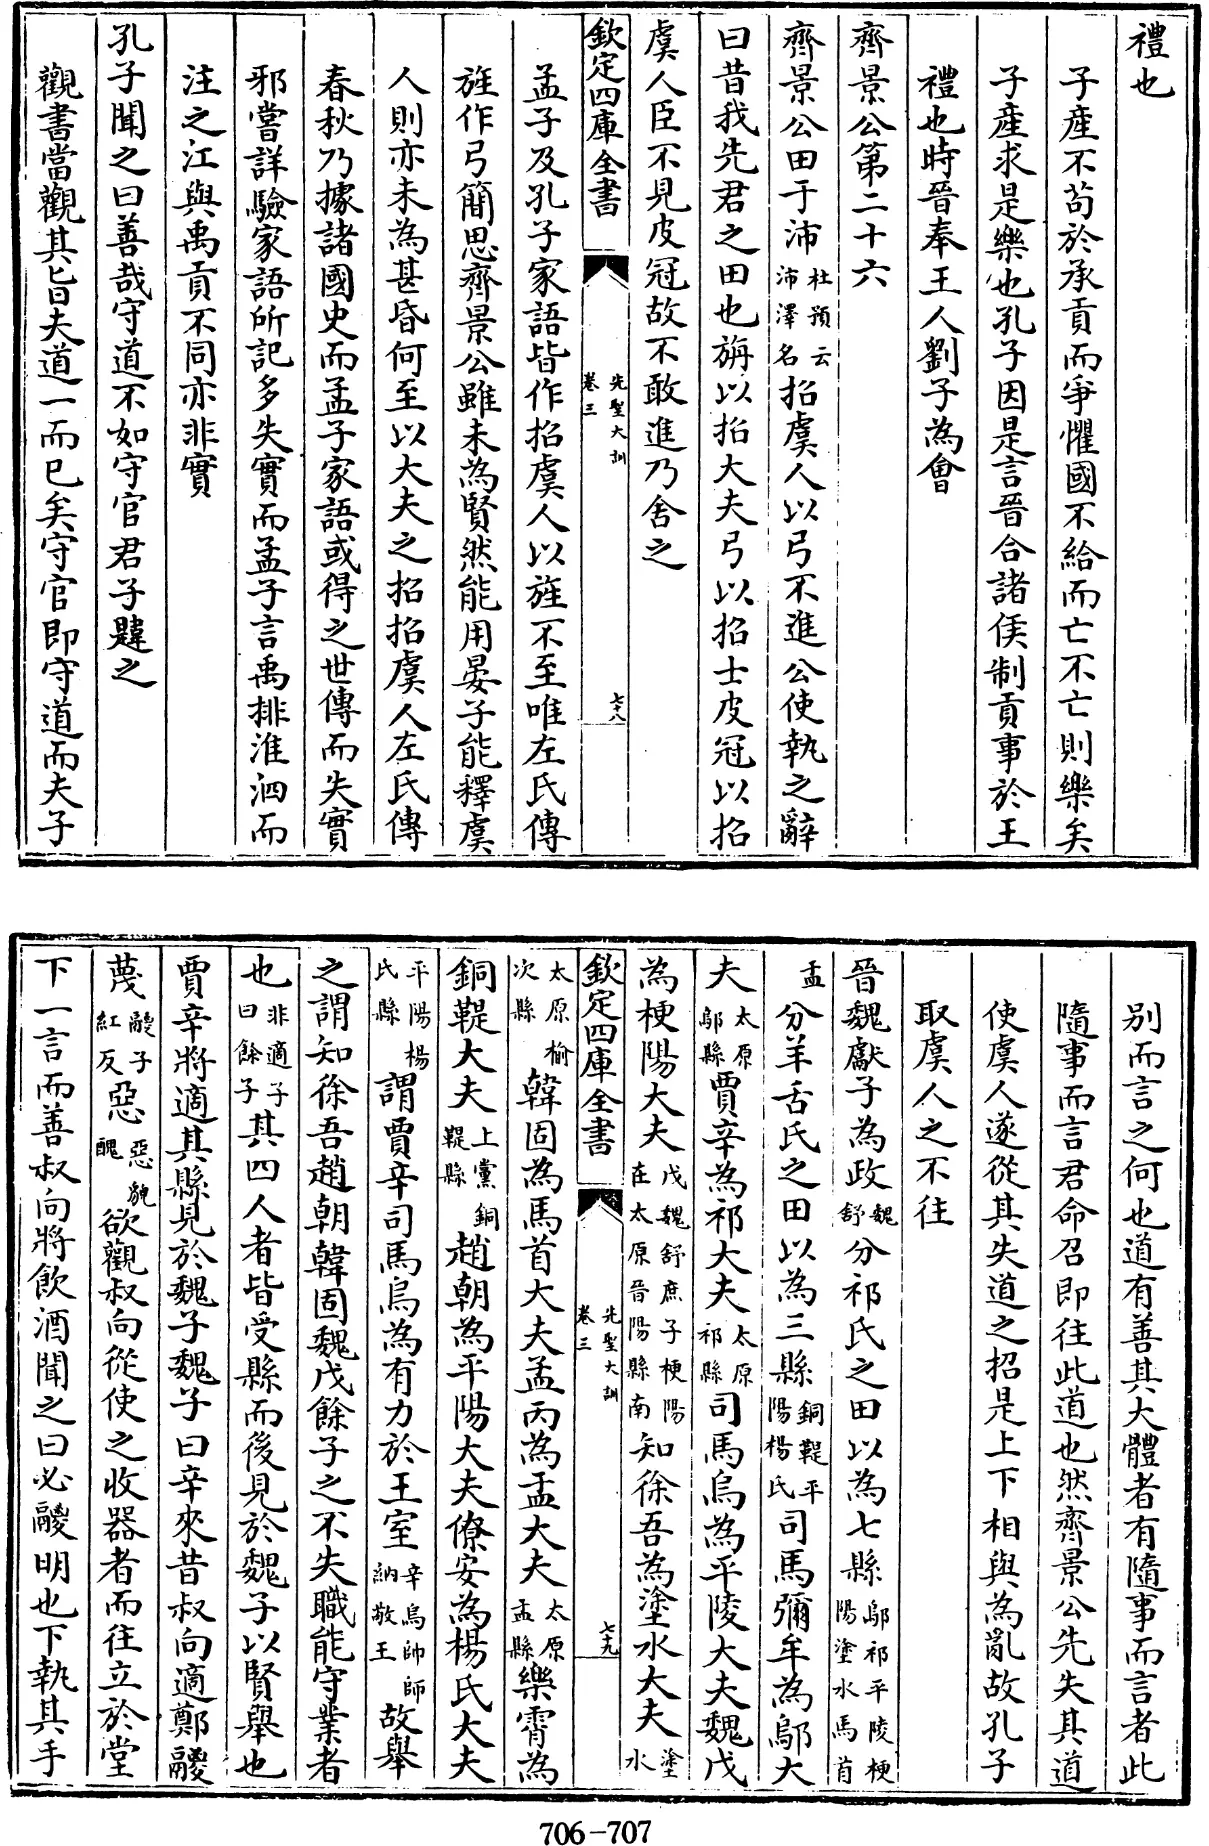 禮也
子産不苟於承貢而爭懼國不給而亡不亡則樂矣
子産求是樂也孔子因是言晉合諸侯制貢事於王
禮也時晉奉王人劉子為會
齊景公第二十六
齊景公田于沛杜預云沛澤名招虞人以弓不進公使執之辭
曰昔我先君之田也旃以招大夫弓以招士皮冠以招
虞人臣不見皮冠故不敢進乃舍之
欽定四庫全書 先聖大訓 卷三 七十八
孟子及孔子家語皆作招虞人以旌不至唯左氏傳
旌作弓簡思齊景公雖未為賢然能用晏子能釋虞
人則亦未為甚昏何至以大夫之招招虞人左氏傳
春秋乃據諸國史而孟子家語或得之世傳而失實
邪嘗詳驗家語所記多失實而孟子言禹排淮泗而
注之江與禹貢不同亦非實
孔子聞之曰善哉守道不如守官君子韙之
觀書當觀其旨夫道一而已矣守官即守道而夫子
別而言之何也道有善其大體者有隨事而言者此
隨事而言君命召即往此道也然齊景公先失其道
使虞人遂從其失道之招是上下相與為亂故孔子
取虞人之不往
晉魏獻子為政魏舒分祁氏之田以為七縣鄔祁平陵梗陽塗水馬首
盂分羊舌氏之田以為三縣銅鞮平陽楊氏司馬彌牟為鄔大
夫太原鄔縣賈辛為祁大夫太原祁縣司馬烏為平陵大夫魏戊
為梗陽大夫戊魏舒庶子梗陽在太原晉陽縣南知徐吾為塗水大夫塗水
欽定四庫全書 先聖大訓 卷三 七十九
太原榆次縣韓固為馬首大夫孟丙為盂大夫太原盂縣樂霄為
銅鞮大夫上黨銅鞮縣趙朝為平陽大夫僚安為楊氏大夫
平陽楊氏縣謂賈辛司馬烏為有力於王室辛烏帥師納敬王故舉
之謂知徐吾趙朝韓固魏戊餘子之不失職能守業者
也非適子曰餘子其四人者皆受縣而後見於魏子以賢舉也
賈辛將適其縣見於魏子魏子曰辛來昔叔向適鄭鬷
蔑鬷子紅反惡惡貌醜欲觀叔向從使之收器者而往立於堂
下一言而善叔向將飲酒聞之曰必鬷明也下執其手
706-707